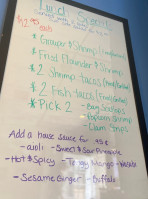 Lunch Specials
$9.95
* Grouper & Shrimp
* Fried Flounder & Shrimp
* 2 Shrimp tacos
* 2 Fish tacos
* Pick 2 - Bay Scallops
- Popcorn Shrimp
- Clam Strips
Add a house sauce for 95¢
- aioli - Sweet & Sour Pineapple
- Hot & Spicy - Tangy Mango - Wasabi
- Sesame Ginger - Buffalo